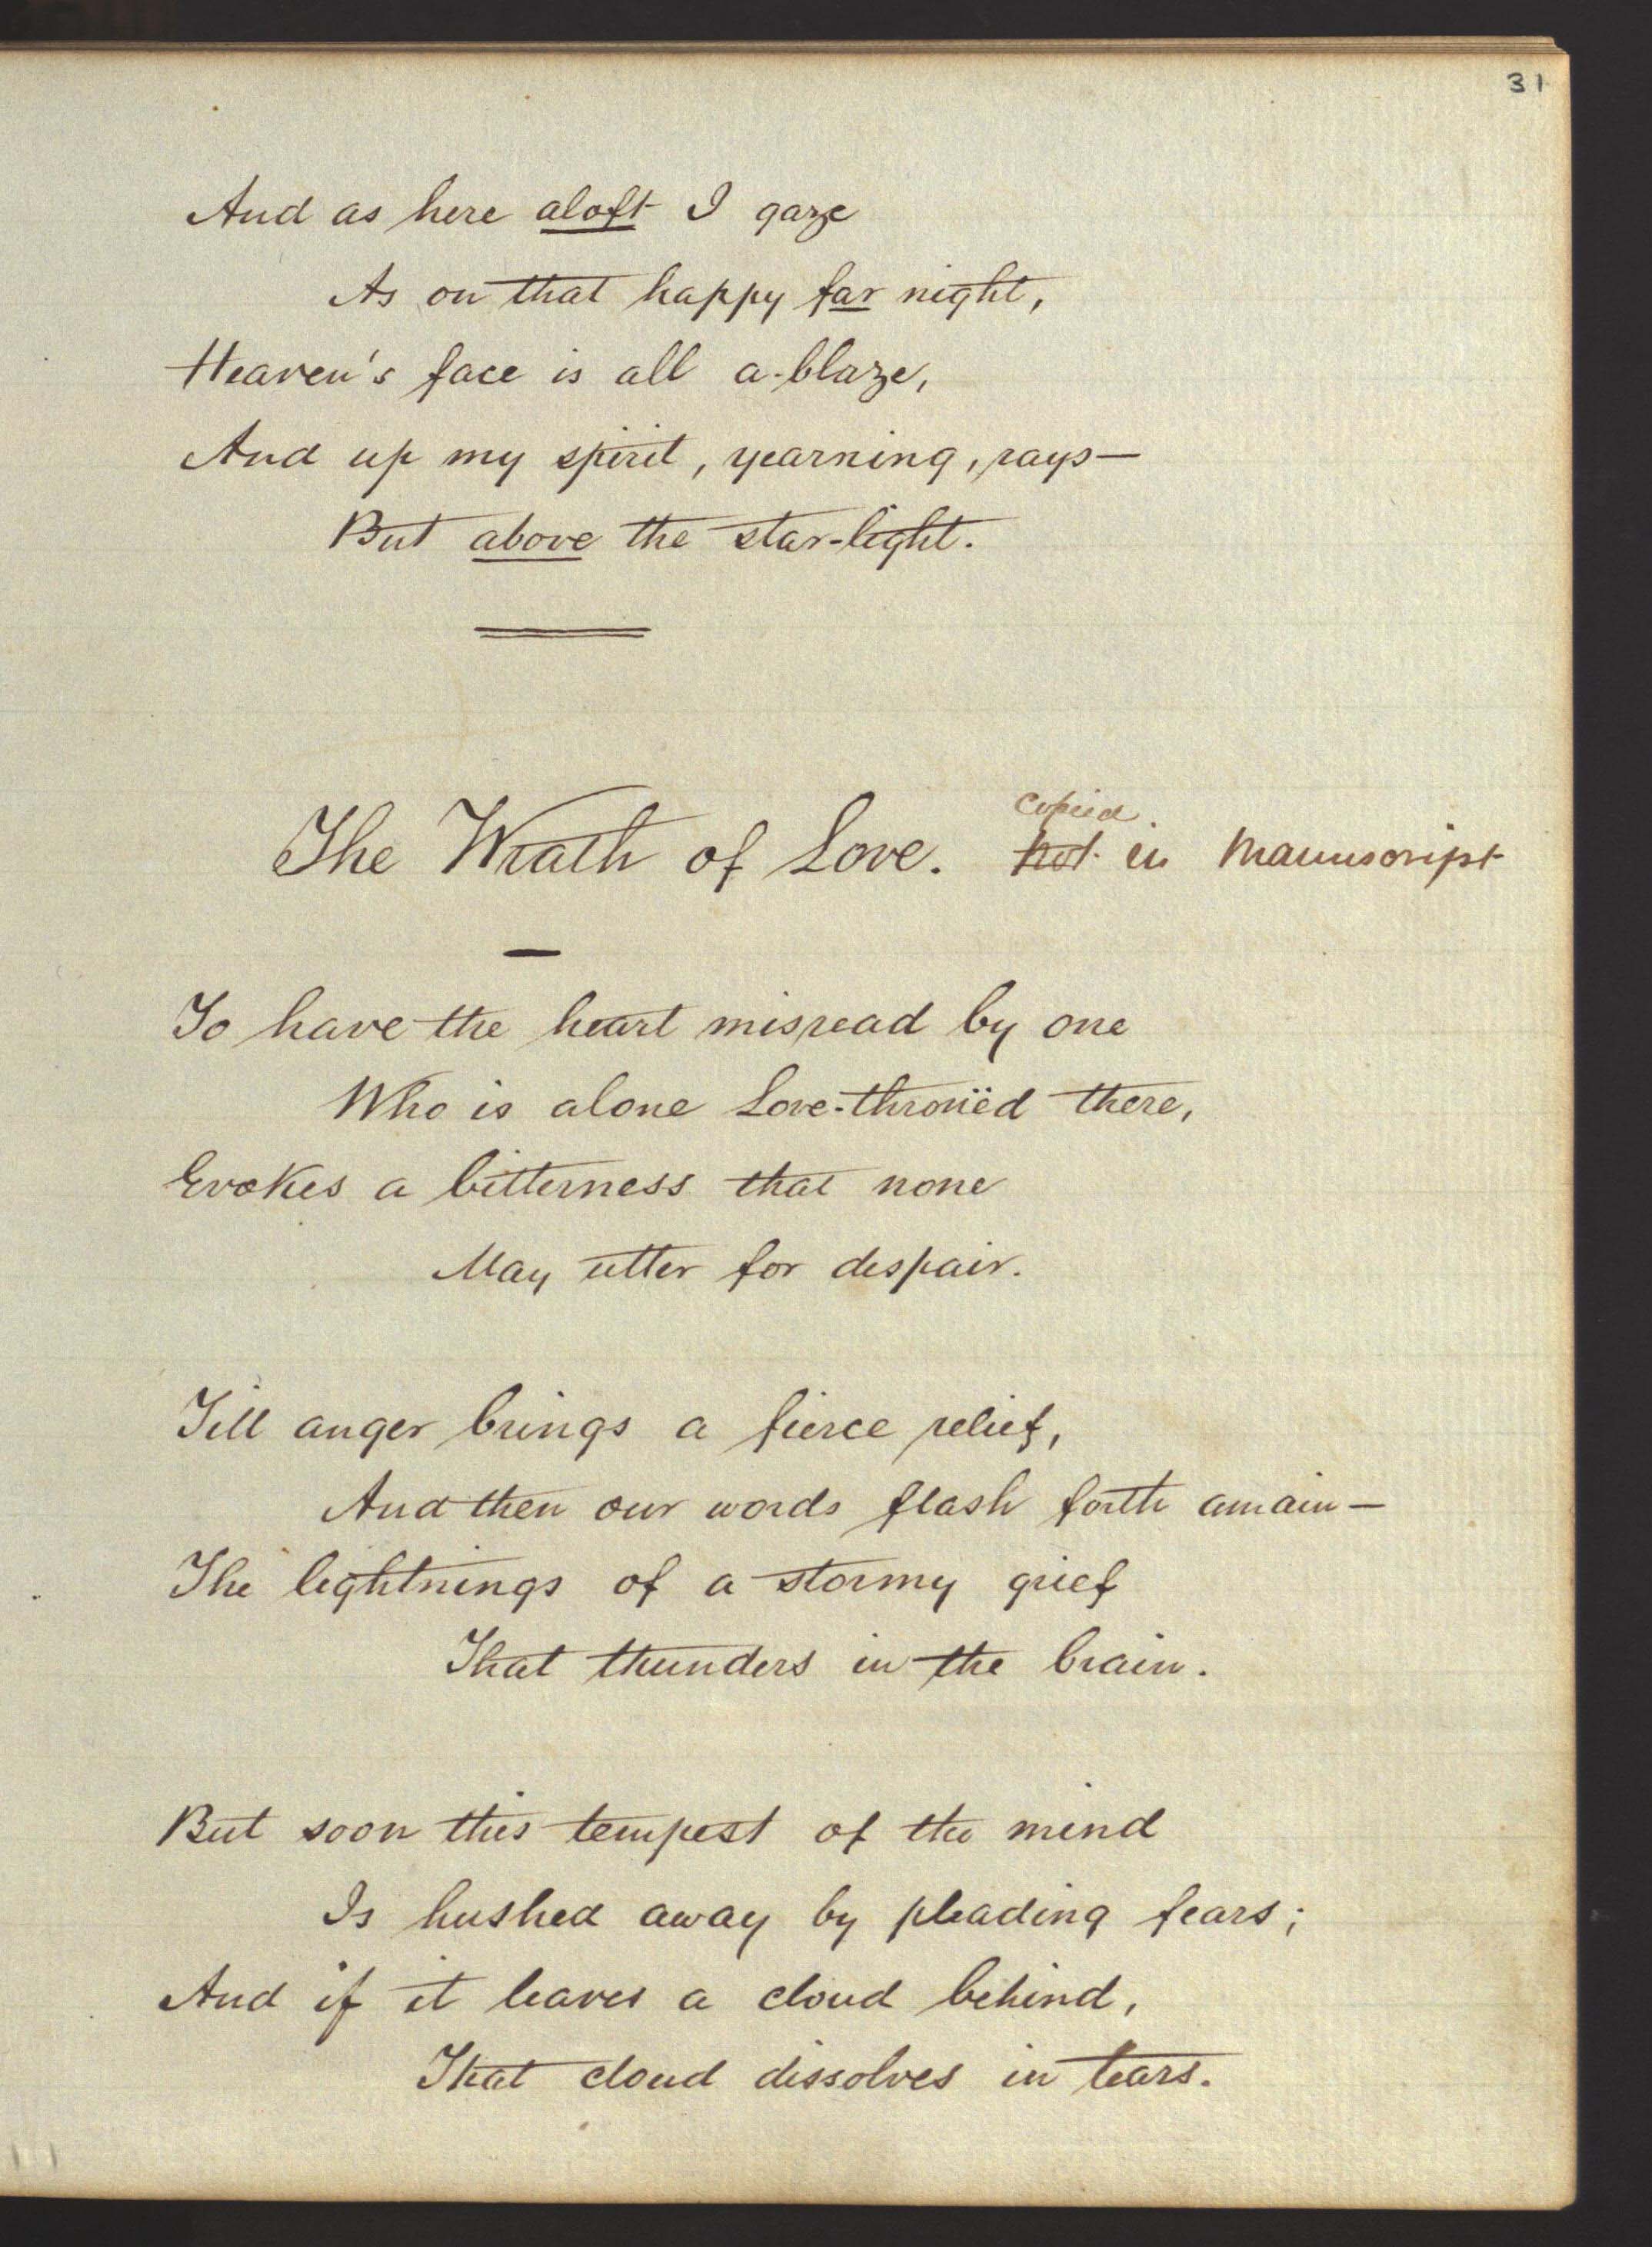 31
And as here aloft I gaze
As on that happy far night,
Heaven's face is all a-blaze,
And up my spirit, yearning, rays—
But above the star-light.
The Wrath of Love. not in Manuscript
copied
To have the heart misread by one
Who is alone Love-thronëd there,
Evokes a bitterness that none
May utter for despair.
Till anger brings a fierce relief,
And then our words flash forth amain—
The lightnings of a stormy grief
That thunders in the brain.
But soon this tempest of the mind
Is hushed away by pleading fears;
And if it leaves a cloud behind,
That cloud dissolves in tears.